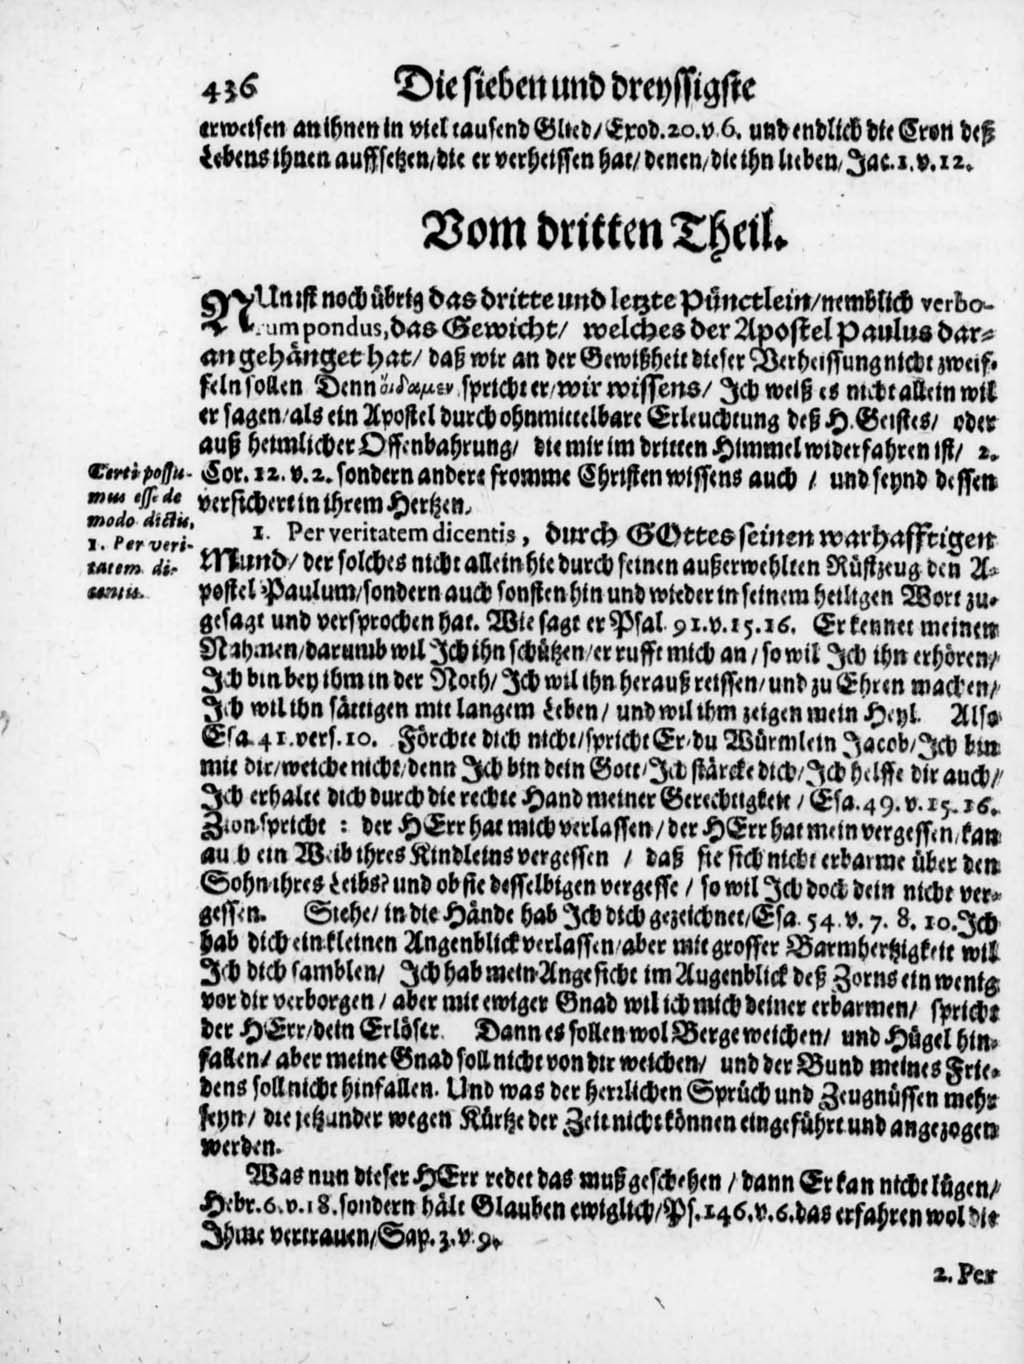 436 Die sieben und dreyssigste
erweisen an ihnen in viel tausend Glied/ Exod. 20. v. 6. und endlich die Cron deß
Lebens ihnen auffsetzen/ die er verheissen hat/ denen/ die ihn lieben/ Jac. 1. v. 12.
Vom dritten Theil.
NUn ist noch übrig das dritte und letzte Pünctlein/ nemblich verbo-
rum pondus, das Gewicht/ welches der Apostel Paulus dar-
an gehänget hat/ daß wir an der Gewißheit dieser Verheissung nicht zweif-
feln sollen Denn οἴδαμεν, spricht er/ wir wissens/ Ich weiß es nicht allein wil
er sagen/ als ein Apostel durch ohnmittelbare Erleuchtung deß H. Geistes/ oder
auß heimlicher Offenbahrung/ die mir im dritten Himmel widerfahren ist/ 2.
Cor. 12. v. 2. sondern andere fromme Christen wissens auch / und seynd dessen
versichert in ihrem Hertzen.
Certi possu-
mus esse de
modo dictis,
1. Per veri-
tatem di-
centis.
1. Per veritatem dicentis, durch GOttes seinen warhafftigen
Mund/ der solches nicht allein hie durch seinen außerwehlten Rüstzeug den A-
postel Paulum/ sondern auch sonsten hin und wieder in seinem heiligen Wort zu-
gesagt und versprochen hat. Wie sagt er Psal. 91. v. 15. 16. Er kennet meinen
Nahmen/ darumb wil Ich ihn schützen/ er rufft mich an/ so wil Ich ihn erhören/
Ich bin bey ihm in der Noth/ Ich wil ihn herauß reissen/ und zu Ehren machen/
Ich wil ihn sättigen mit langem Leben/ und wil ihm zeigen mein Heyl. Also
Esa. 41. vers. 10. Förchte dich nicht/ spricht Er/ du Würmlein Jacob/ Ich bin
mit dir/ weiche nicht/ denn Ich bin dein Gott/ Ich stärcke dich/ Ich helffe dir auch/
Ich erhalte dich durch die rechte Hand meiner Gerechtigkeit / Esa. 49. v. 15. 16.
Zion spricht : der HErr hat mich verlassen/ der HErr hat mein vergessen/ kan
auch ein Weib ihres Kindleins vergessen / daß sie sich nicht erbarme über den
Sohn ihres Leibs? und ob sie desselbigen vergesse / so wil Ich doch dein nicht ver-
gessen. Siehe/ in die Hände hab Ich dich gezeichnet/ Esa. 54. v. 7. 8. 10. Ich
hab dich ein kleinen Angenblick verlassen/ aber mit grosser Barmhertzigkeit wil
Ich dich samblen/ Ich hab mein Angesicht im Augenblick deß Zorns ein wenig
vor dir verborgen / aber mit ewiger Gnad wil ich mich deiner erbarmen/ spricht
der HErr/ dein Erlöser. Dann es sollen wol Berge weichen/ und Hügel hin-
fallen/ aber meine Gnad soll nicht von dir weichen/ und der Bund meines Frie-
dens soll nicht hinfallen. Und was der herzlichen Sprüch und Zeugnüssen mehr
seyn/ die jetzunder wegen Kürtze der Zeit nicht können eingeführt und angezogen
werden.
Was nun dieser HErr redet das muß geschehen / dann Er kan nicht lügen/
Hebr. 6. v. 18. sondern hält Glauben ewiglich/ Ps. 146. v. 6. das erfahren wol die
Ihme vertrauen/ Sap. 3. v. 9.
2. Per